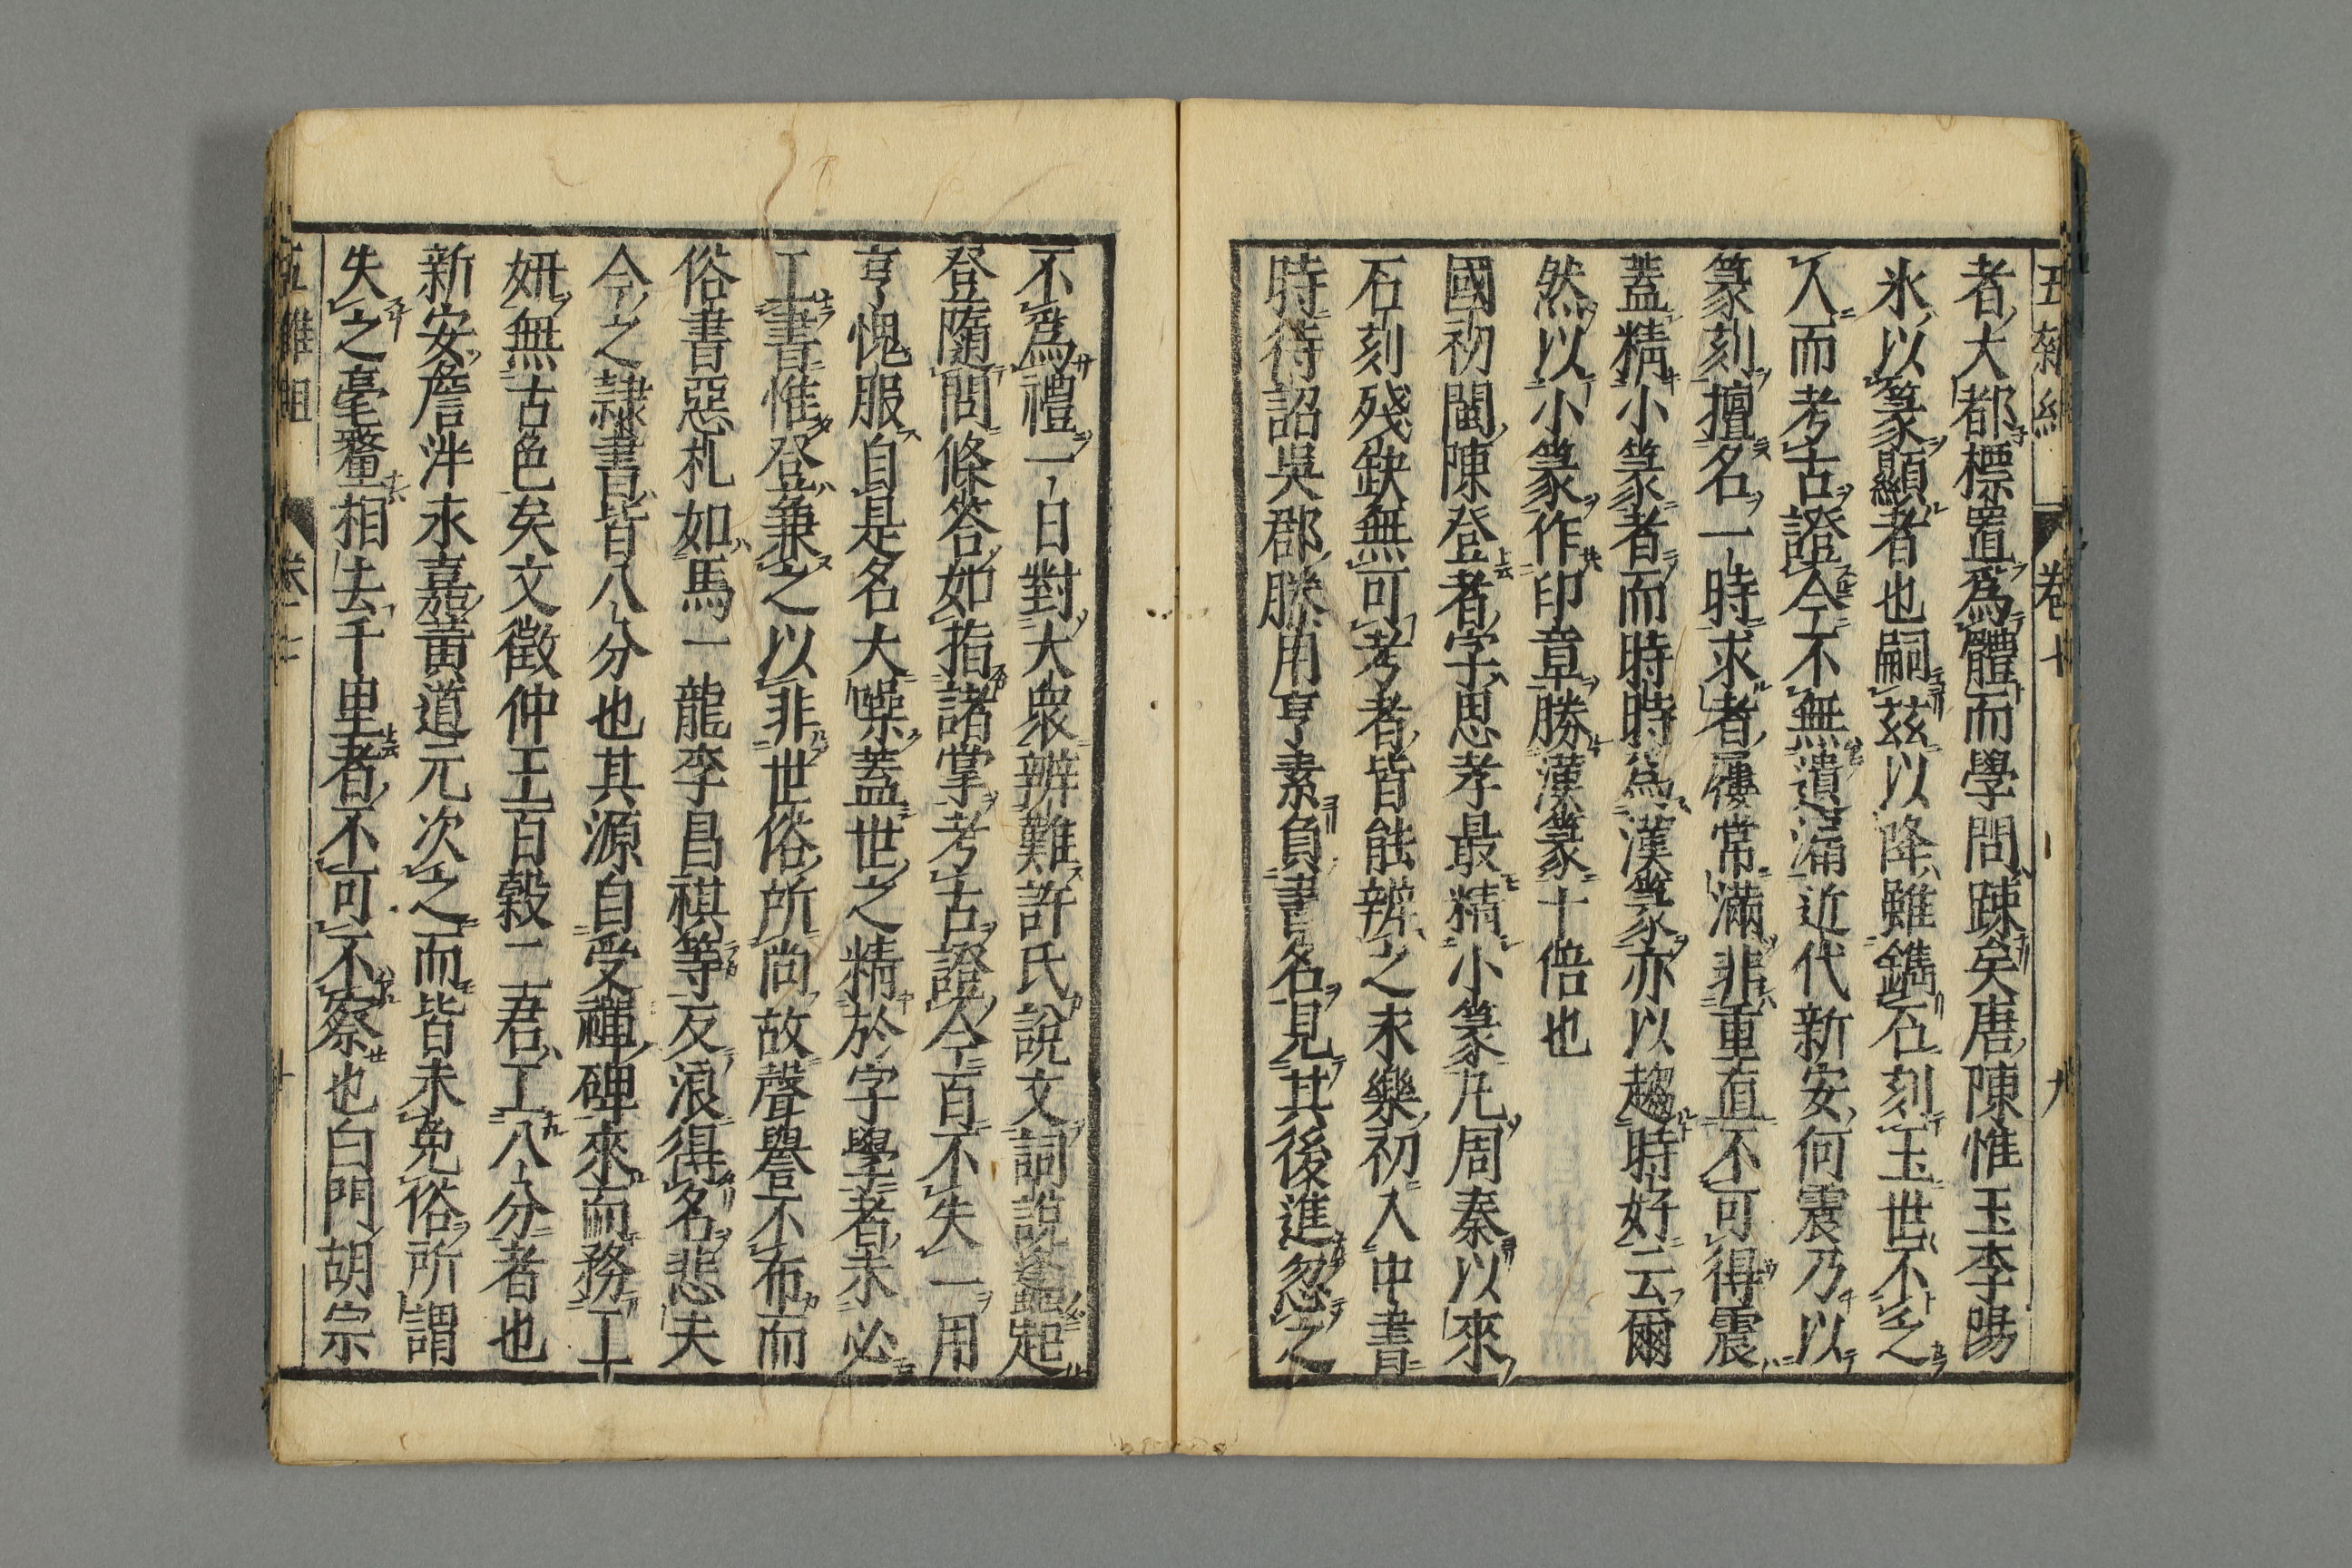 五雜組 卷七 九
者大都標置爲體而學問踈矣唐陳惟玉李陽
氷以篆顯者也嗣茲以降雖鐫石刻玉世不乏
人而考古證今不無遺漏近代新安何震乃以
篆刻擅名一時求者屨常滿非重直不可得震
蓋精小篆者而時時爲漢篆亦以趨時好云爾
然以小篆作印章勝漢篆十倍也
國初閩陳登者字思孝最精小篆凡周秦以來
石刻殘缺無可考者皆能辨之末樂初入中書
時待詔吳郡滕用亨素負書名見其後進忽之
不爲禮一日對大衆辨難許氏說文詞說蠭起
登隨問條答如指諸掌考古證今百不失一用
亨愧服自是名大噪蓋世之精於字學者未必
工書惟登兼之以非世俗所尚故聲譽不布而
俗書惡札如馬一龍李昌祺等反浪得名悲夫
今之隷書皆八分也其源自受禪碑來而務工
妍無古色矣文徵仲王百穀二君工八分者也
新安詹泮永嘉黃道元次之而皆未免俗所謂
失之毫釐相去千里者不可不察也白門胡宗
五雜組 卷七 十